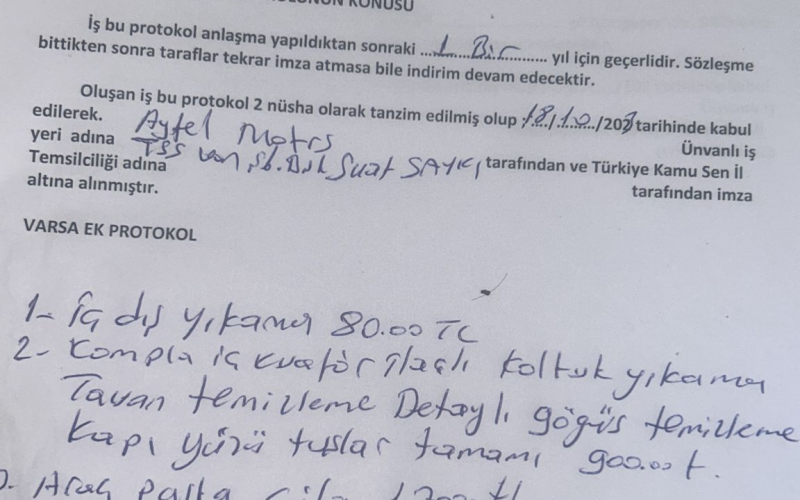 KONUSU
İş bu protokol anlaşma yapıldıktan sonraki ....1 Bir.......... yıl için geçerlidir. Sözleşme
bittikten sonra taraflar tekrar imza atmasa bile indirim devam edecektir.
Oluşan iş bu protokol 2 nüsha olarak tanzim edilmiş olup 18/10/2023 tarihinde kabul
edilerek. Aytel Motrs Ünvanlı iş
yeri adına TSS Van Şb. Bşk Suat SAYICI tarafından ve Türkiye Kamu Sen İl
Temsilciliği adına tarafından imza
altına alınmıştır.
VARSA EK PROTOKOL
1- iç dış yıkama 80.00 TL
2- Kompla iç kuaför ilaçlı koltuk yıkama
Tavan temizleme Detaylı göğüs temizleme
kapı yüzü tuslar tamamı 900.00 t.
Araç pasta